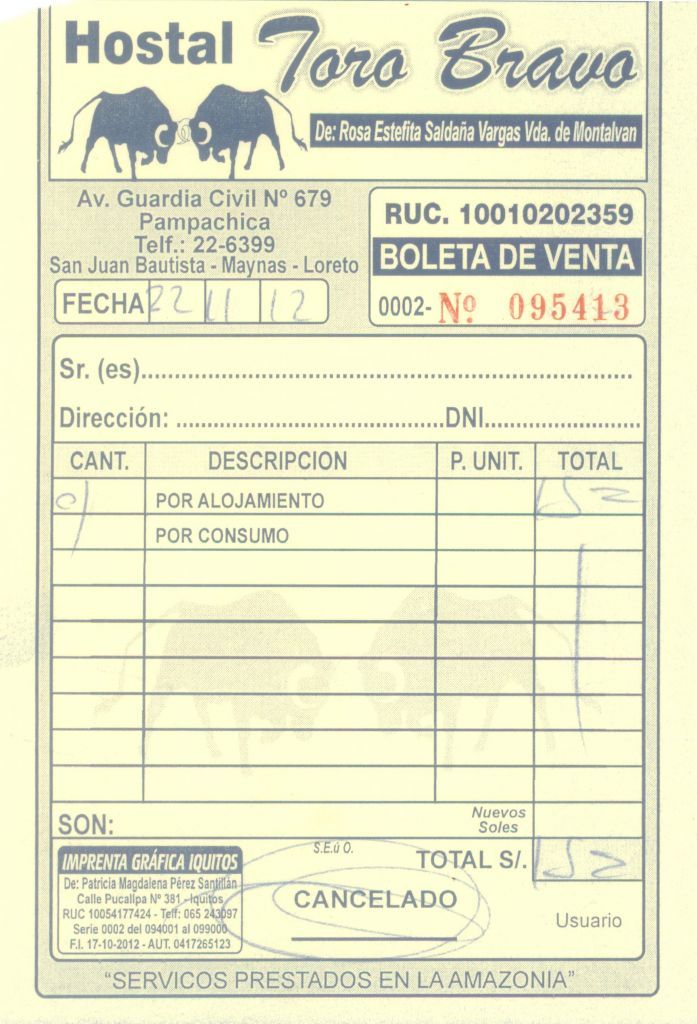 Hostal Toro Bravo
De: Rosa Estefita Saldaña Vargas Vda. de Montalvan
Av. Guardia Civil Nº 679
Pampachica
Telf.: 22-6399
San Juan Bautista - Maynas - Loreto
RUC. 10010202359
BOLETA DE VENTA
0002- Nº 095413
FECHA 22 11 12
Sr. (es)
Dirección: DNI
CANT. DESCRIPCION P. UNIT. TOTAL
01 POR ALOJAMIENTO 152
POR CONSUMO
SON: Nuevos Soles
S.E.ú O.
TOTAL S/. 152
CANCELADO
Usuario
IMPRENTA GRÁFICA IQUITOS
De: Patricia Magdalena Pérez Santillán
Calle Pucallpa Nº 381 - Iquitos
RUC 10054177424 - Telf: 065 243097
Serie 0002 del 094001 al 099000
F.I. 17-10-2012 - AUT. 0417265123
"SERVICOS PRESTADOS EN LA AMAZONIA"